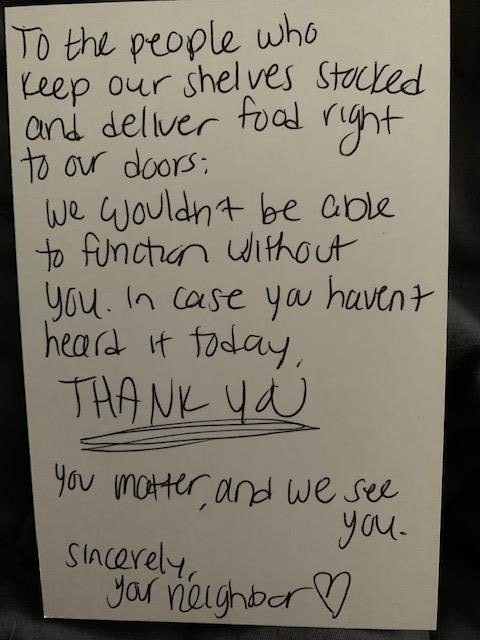 To the people who
keep our shelves stocked
and deliver food right
to our doors:
We wouldn't be able
to function without
you. In case you haven't
heard it today,
THANK YOU
You matter, and we see
you.
Sincerely,
your neighbor ♡